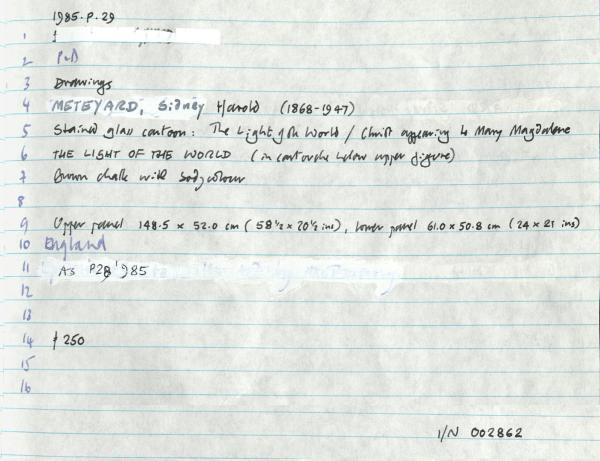 1985.P.29
1
2 P&D
3 Drawings
4 METEYARD, Sidney Harold (1868-1947)
5 Stained glass cartoon: The Light of the World / Christ appearing to Mary Magdalene
6 THE LIGHT OF THE WORLD (in cartouche below upper figure)
7 Brown chalk with bodycolour
8
9 Upper panel 148.5 x 52.0 cm (58½ x 20½ ins), lower panel 61.0 x 50.8 cm (24 x 21 ins)
10 England
11 As P28'985
12
13
14 250
15
16
I/N 002862